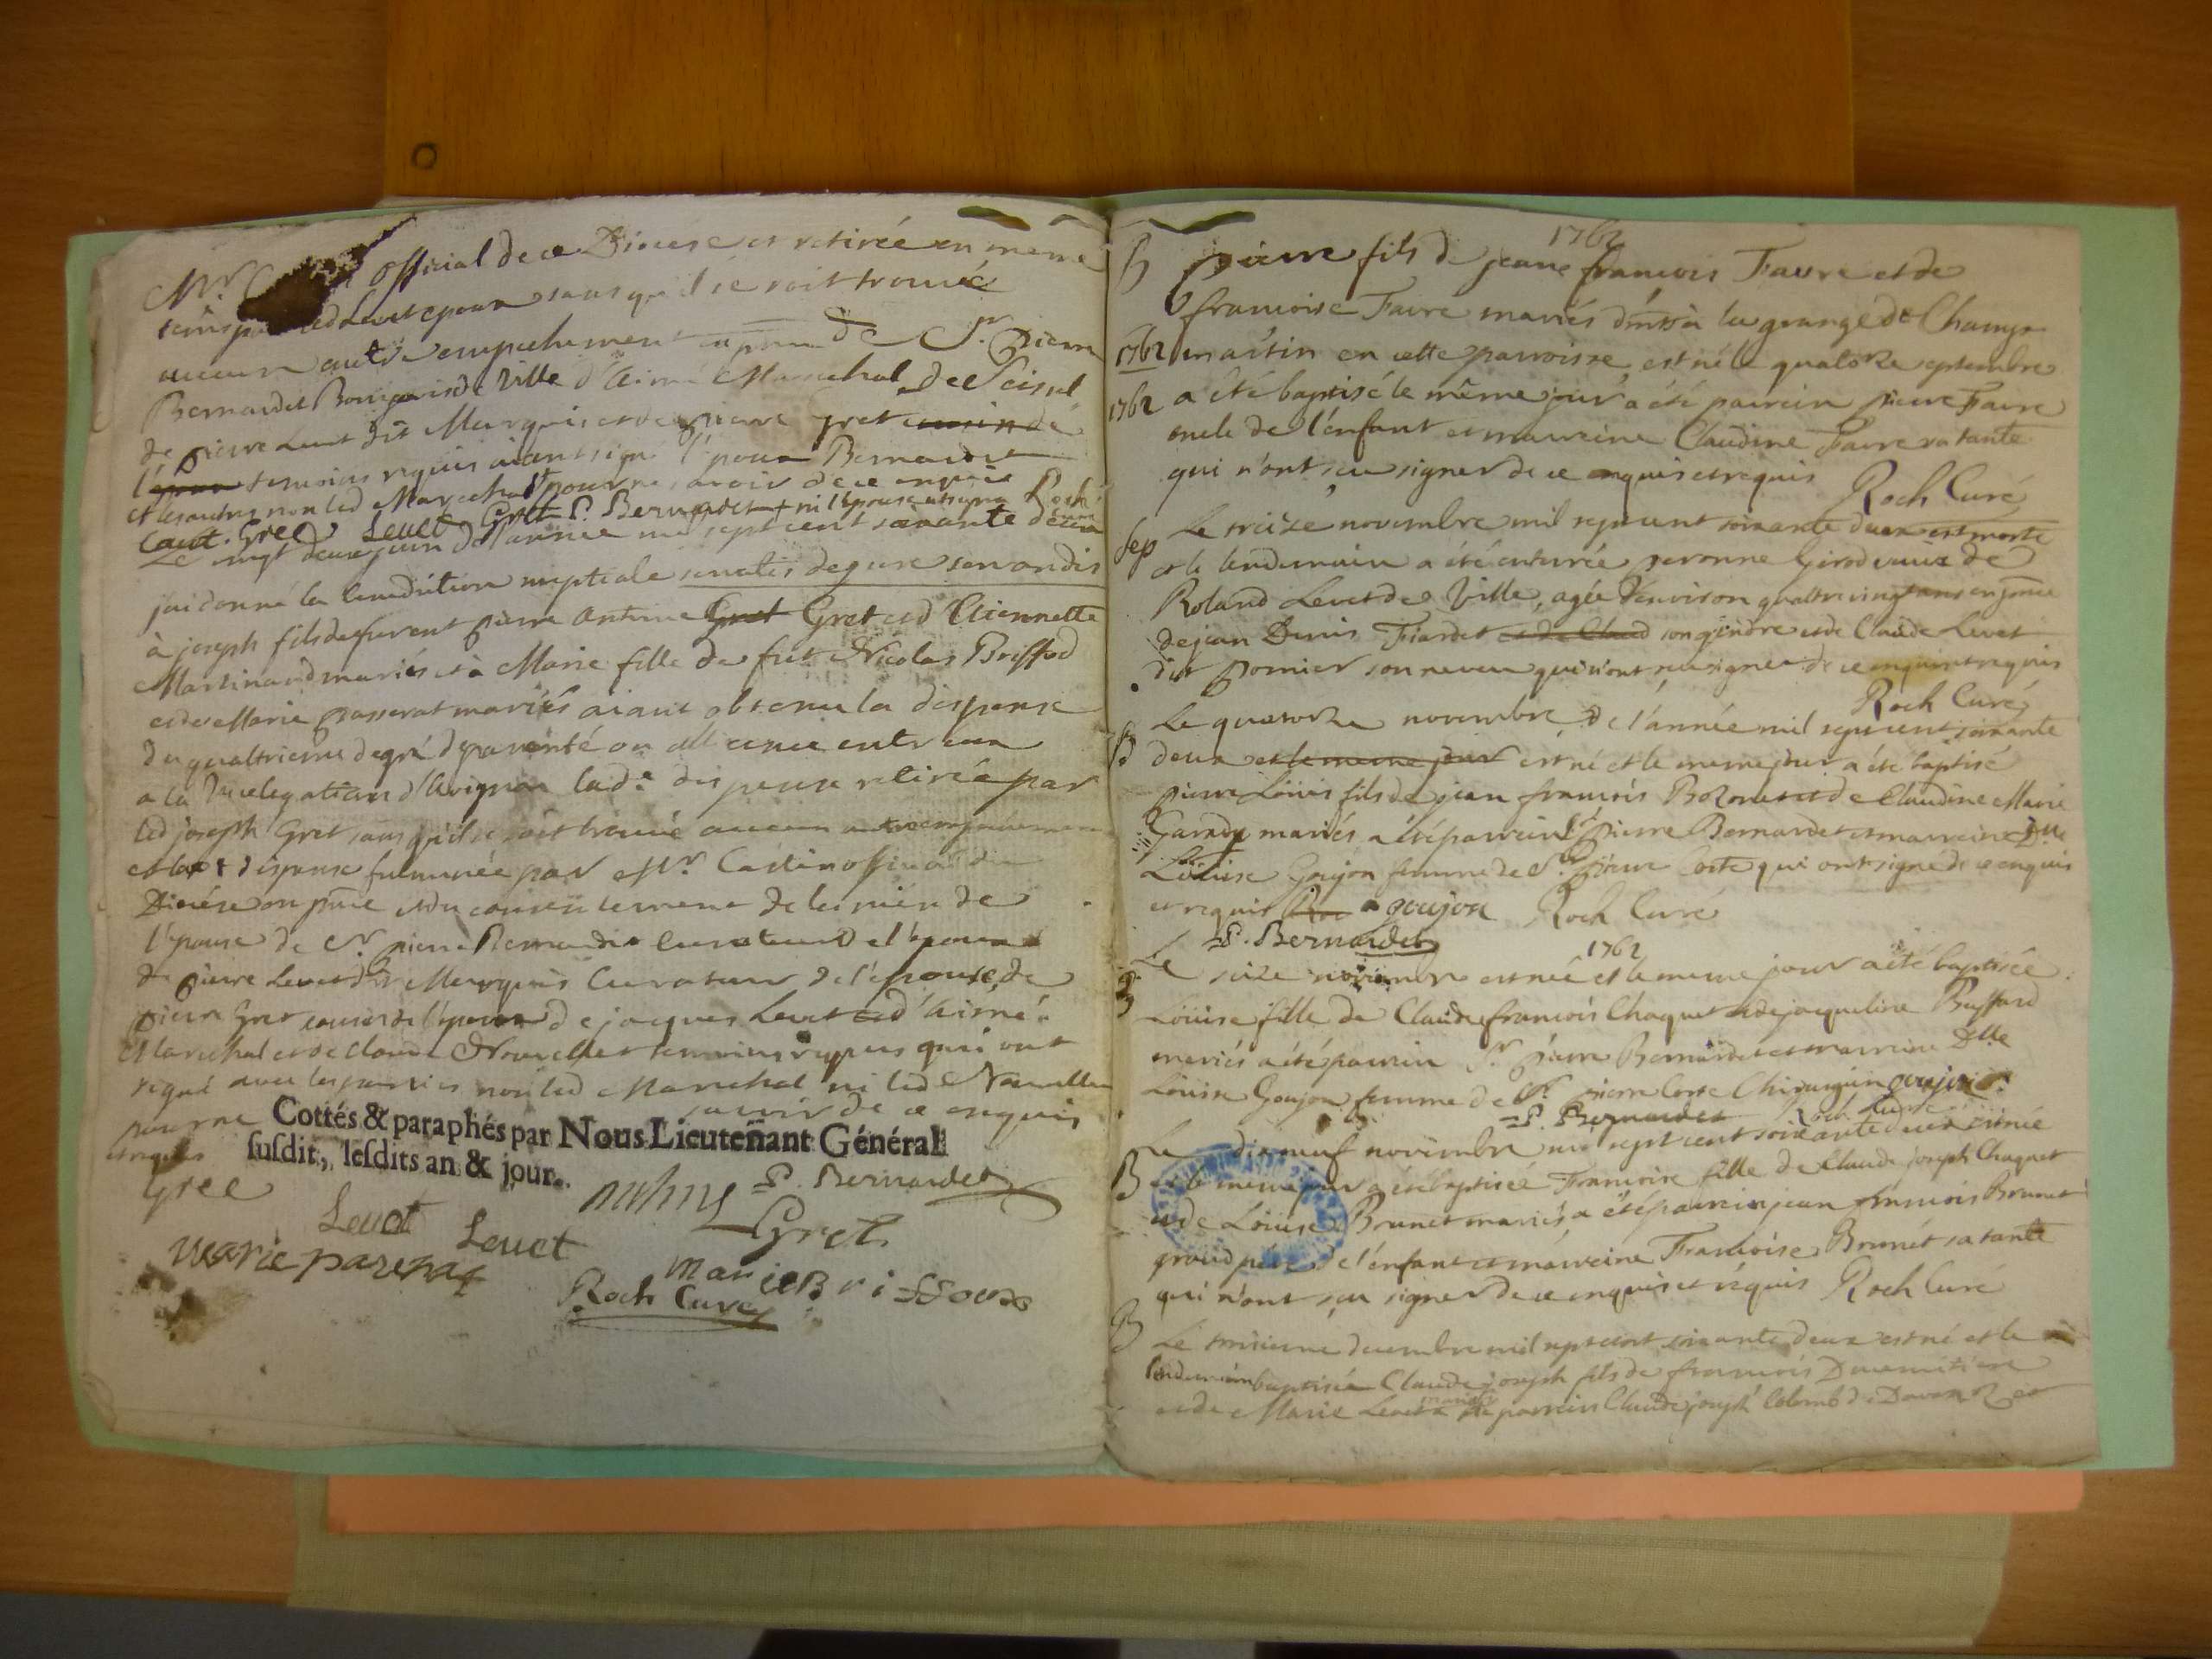 Mr. official de ce Diocese et retirée en meme
tems par led Levet epoux sans qu'il se soit trouvé
aucun autre empechement de Sr. pierre
Bernardet Bourgeois de Ville d'Aimé Marechal de Seissel
de pierre Levet dit Marquis et de pierre gret cousin de
l'epoux temoins requis aiant signé l'epoux Bernardet
et les autres non led Marechal pour ne savoir de ce enquis
Caut. Gree Levet Gret P. Bernardet ni l'epouse Roch curé
Le vingt deux juin de l'année mil sept cent soixante deux
j'ai donné la benediction nuptiale servatis de jure servandis
à joseph fils de furent pierre Antoine Gret Gret et d'Etiennette
Martinand mariés et à Marie fille de fut Nicolas Briffod
et de Marie passerat mariés aiant obtenu la dispense
du quattrieme degré de parenté ou alliance entr'eux
a la Vicelegation d'Avignon lad.e dispense retirée par
led joseph Gret sans qu'il se soit trouvé aucun autre empechement
et lad dispense fulminée par Mr. Castin official du
Diocése en et du consentement de la mére de
l'epouse de Sr. pierre Bernardet curateur de l'epoux
de pierre Levet dit Marquis Curateur de l'epouse de
pierre Gret cousin de l'epoux de jacques Levet et d'aimé
Marechal et de claude Nouvellet temoins requis qui ont
signé avec les parties non led Marechal ni led Nouvellet
pour ne savoir de ce enquis
et requis
Cottés & paraphés par Nous Lieutenant Général
susdit, lesdits an & jour.
P. Bernardet
Gree
Levet Levet Gret
marie pazerat
marie Briffoux
Roch Curé
1762
B pierre fils de jeane francois Favre et de
francoise Favre mariés à la grange de Champ
1762 martin en cette parroisse est né le quatorze septembre
1762 a été baptisé le même jour a été parrein pierre Favre
oncle de l'enfant et marreine Claudine Favre sa tante
qui n'ont seu signer de ce enquis et requis
Roch Curé
Sep Le treize novembre mil sept cent soixante deux est morte
et le lendemain a été enterrée peronne Girod veuve de
Roland Levet de Ville, agée d'environ quattre vingt ans en
de jean Denis Fiardet et de Claud son gendre et de Claude Levet
dit pornier son neveu qui n'ont seu signer de ce enquis et requis
Roch Curé
B Le quatorze novembre de l'année mil sept cent soixante
deux et le meme jour est né et le meme jour a été baptisé
pierre Loüis fils de jean francois Bozonet et de Claudine Marie
mariés a été parrein Sr. pierre Bernardet et marreine Dlle
Loüise Goujon femme de Sr. pierre Coste qui ont signé de ce enquis
et requis L goujon Roch Curé
P. Bernardet
1762
B Le seize novembre est née et le meme jour a été baptisée
Loüise fille de Claude francois Chaquet et de jacqueline Buffard
mariés a été parrein Sr. pierre Bernardet et marreine Dlle
Loüise Goujon femme de Sr. pierre Coste Chirurgien goujon
P. Bernardet Roch Curé
Le dix neuf novembre mil sept cent soixante deux est née
B et le meme jour a été baptisée Francoise fille de Claude joseph Chaquet
et de Loüise Brunet mariés a été parrein jean francois Brunet
grand pére de l'enfant et marreine Francoise Brunét sa tante
qui n'ont seu signer de ce enquis et requis Roch Curé
B Le troisieme decembre mil sept cent soixante deux est né et le
lendemain baptisé Claude joseph fils de francois Ducimetiere
et de Marie Levet mariés parrein Claude joseph Colomb de et